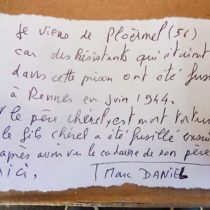 Je viens de Ploërmel (56)
car des Résistants qui étaient
dans cette prison ont été fus
à Rennes en juin 1944.
le père chérel, est mort tortur
le fils chérel a été fusillé
après avoir vu le cadavre de son père
ici.
Marc DANIEL